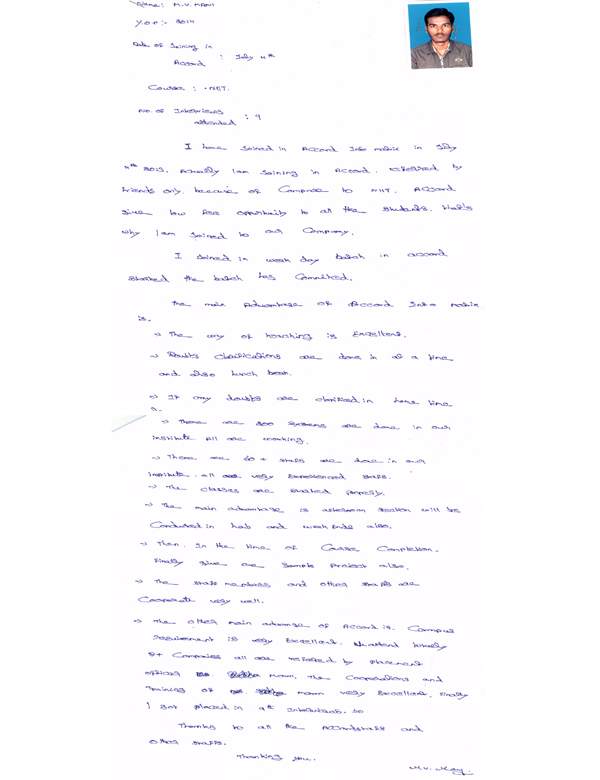 Name: M.V. Mani
Y.O.P :- 2014
Date of Joining in
Accord : July 4th
Course : .NET.
No. of Interviews
attended : 9
I have Joined in Accord Info matrix in July
4th 2013. Actually I am Joining in Accord. Referred by
friends only. because of Compare to NIIT. Accord
give low fee opportunity to all the students. that's
why I am Joined to our Company.
I Joined in week day batch in accord
started the batch has Committed.
The main Advantage of Accord Info matrix
is.
-> The way of teaching is Excellent.
-> Doubts clarifications are done in at a time
and also lunch break.
-> If any doubts are clarified in time
-> There are 300 systems are done in our
institute all are working.
-> There are 60 + staffs are done in our
institute. all are very Experienced staffs.
-> The classes are started properly.
-> The main advantage is section will be
Conducted in lab and week ends also.
-> Then. In the time of Course Completion.
Finally give one Sample Project also.
-> The staff members and other staffs are
Cooperate very well.
-> The other main advantage of Accord is. Campus
requirement is very Excellent. attend
8+ Companies all are referred by placement
officer mam. The Cooperations and
Training of mam very Excellent. Finally
I got placed in 9th Interview. so
Thanks to all the Accord staffs and
other staffs.
Thanking you.